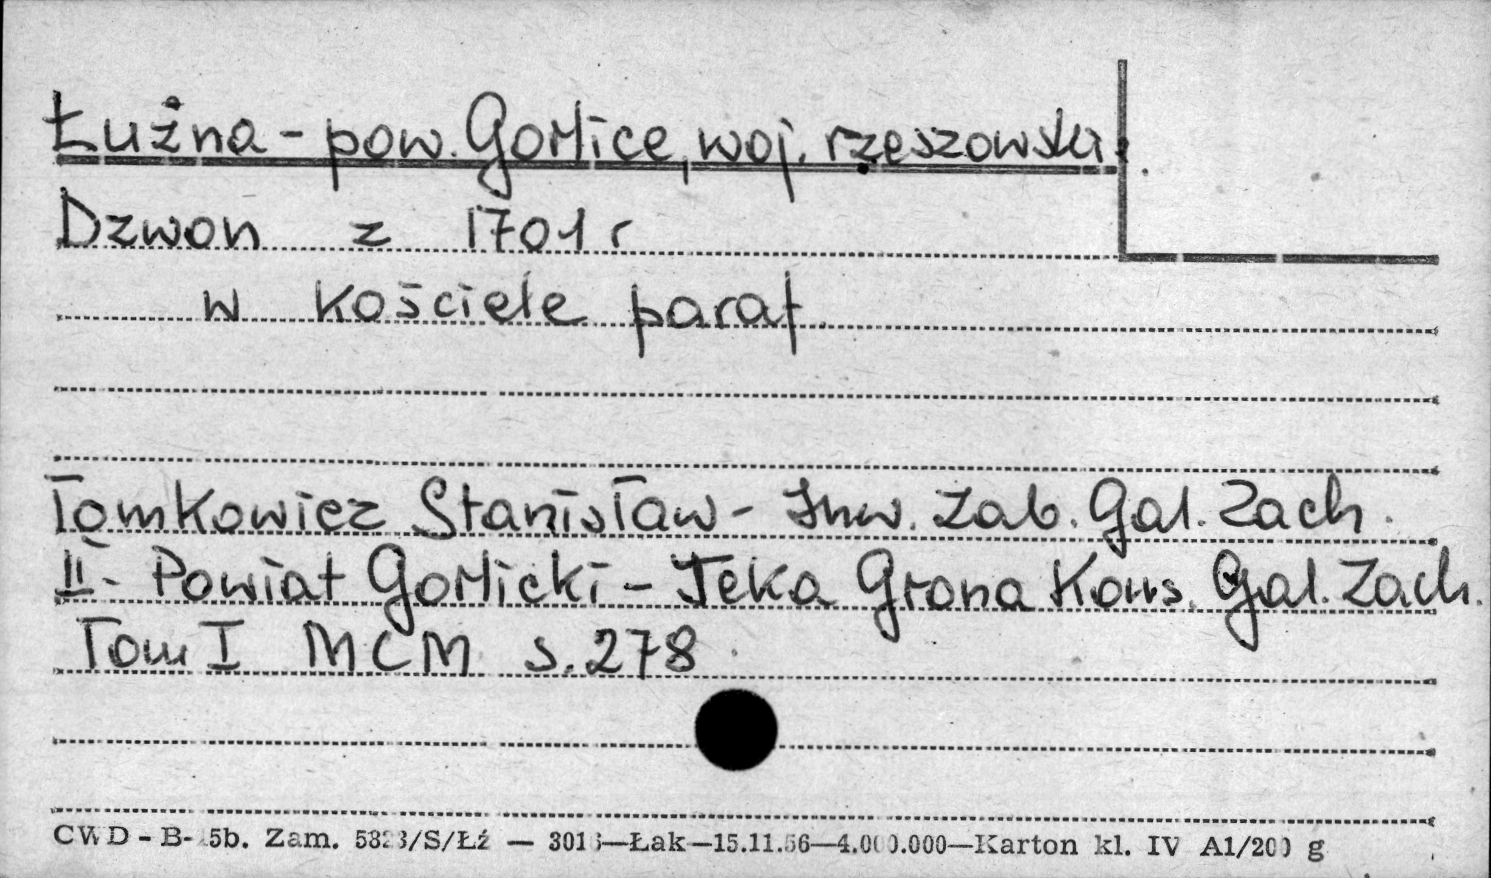 Łużna - pow. Gorlice, woj. rzeszowskie
Dzwon z 1701 r
w kościele paraf.
Tomkowicz Stanisław - Inw. Zab. Gal. Zach.
II - Powiat Gorlicki - Teka Grona Kons. Gal. Zach.
Tom I MCM s. 278
CWD - B- 5b. Zam. 5823/S/Łź — 3016—Łak—15.11.56—4.000.000—Karton kl. IV A1/200 g